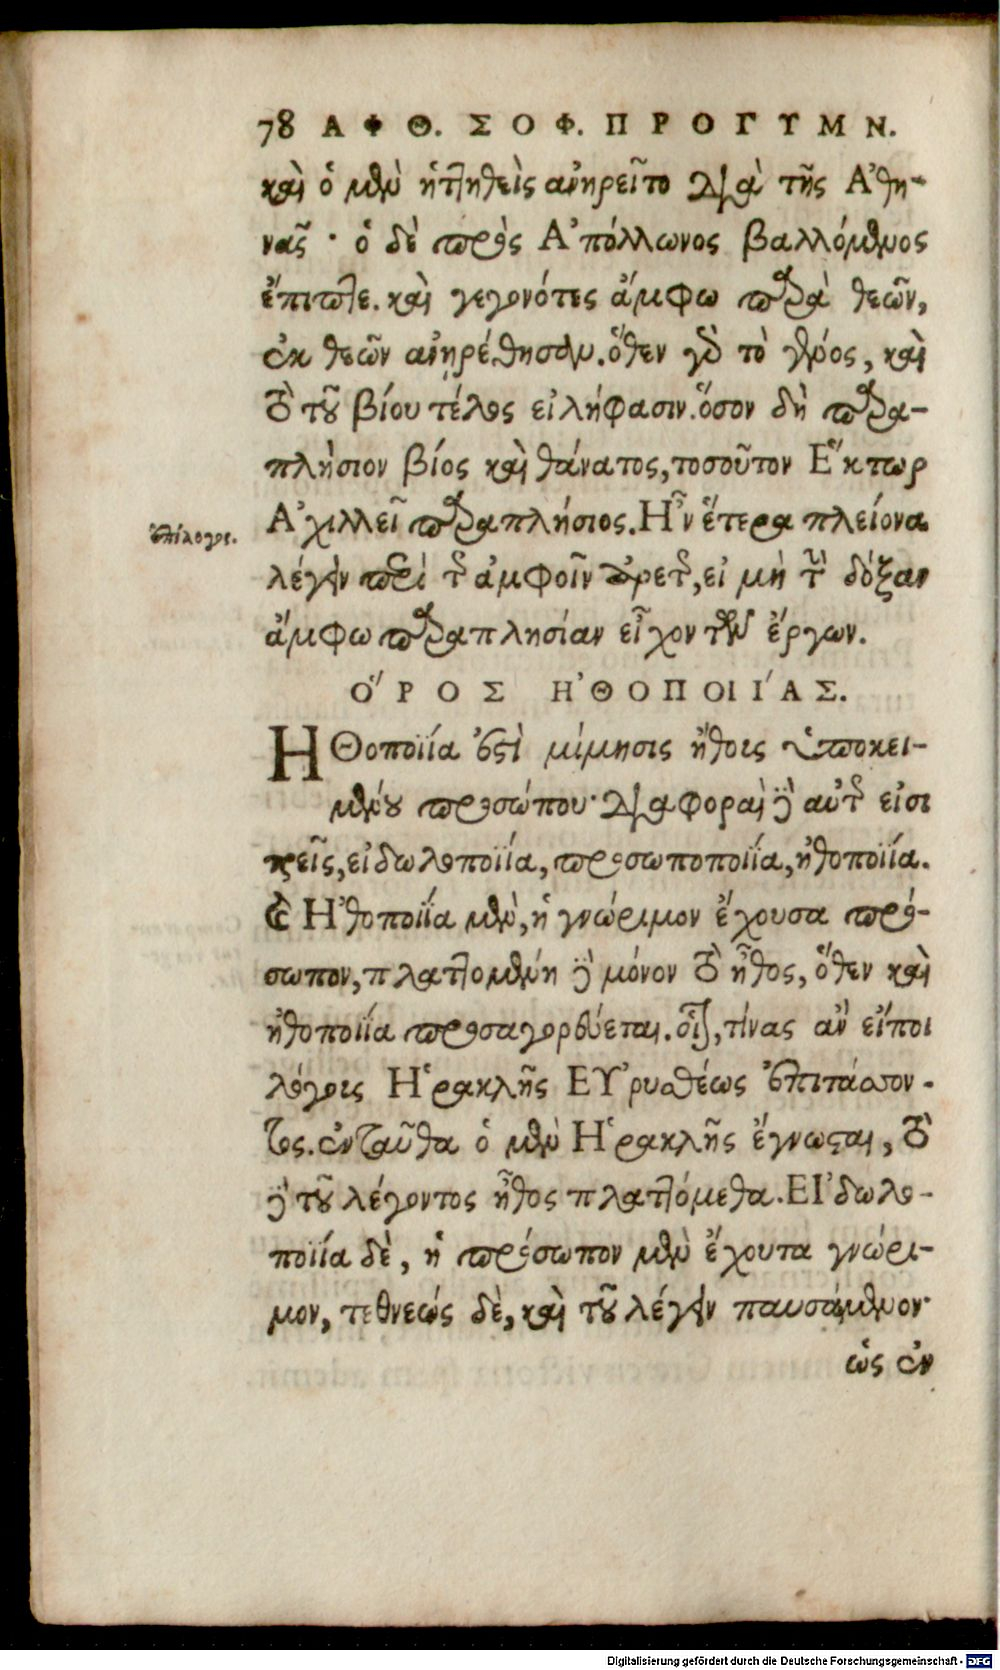 78 ΑΦΘ. ΣΟΦ. ΠΡΟΓΥΜΝ.
καὶ ὁ μὲν ἡττηθεὶς ἀνῃρεῖτο διὰ τῆς Ἀθη-
νᾶς · ὁ δὲ πρὸς Ἀπόλλωνος βαλλόμενος
ἔπιπτε. καὶ γεγονότες ἄμφω παρὰ θεῶν,
ἐκ θεῶν ἀνῃρέθησαν. ὅθεν γὰρ τὸ γένος, καὶ
τὸ τοῦ βίου τέλος εἰλήφασιν. ὅσον δὴ παρα-
πλήσιον βίος καὶ θάνατος, τοσοῦτον Ἕκτωρ
Ἀχιλλεῖ παραπλήσιος. Ἦν ἕτερα πλείονα
ἐπίλογος.
λέγειν περὶ τῆς ἀμφοῖν ἀρετῆς, εἰ μὴ τὴν δόξαν
ἄμφω παραπλησίαν εἶχον τῶν ἔργων.
ὍΡΟΣ ἨΘΟΠΟΙΙΑΣ.
ΗΘοποιΐα ἐστὶ μίμησις ἤθους ὑποκει-
μένου προσώπου· διαφοραὶ δὲ αὐτῆς εἰσι
τρεῖς, εἰδωλοποιΐα, προσωποποιΐα, ἠθοποιΐα.
Ἠθοποιΐα μὲν, ἡ γνώριμον ἔχουσα πρό-
σωπον, πλαττομένη δὲ μόνον τὸ ἦθος, ὅθεν καὶ
ἠθοποιΐα προσαγορεύεται. οἷον, τίνας ἂν εἴποι
λόγους Ἡρακλῆς Εὐρυσθέως ἐπιτάσσον-
τος. ἐνταῦθα ὁ μὲν Ἡρακλῆς ἔγνωσται, τὸ
δὲ τοῦ λέγοντος ἦθος πλαττόμεθα. Εἰδωλο-
ποιΐα δὲ, ἡ πρόσωπον μὲν ἔχουσα γνώρι-
μον, τεθνεώς δὲ, καὶ τοῦ λέγειν παυσάμενον·
ὡς ἐν
Digitalisierung gefördert durch die Deutsche Forschungsgemeinschaft - DFG